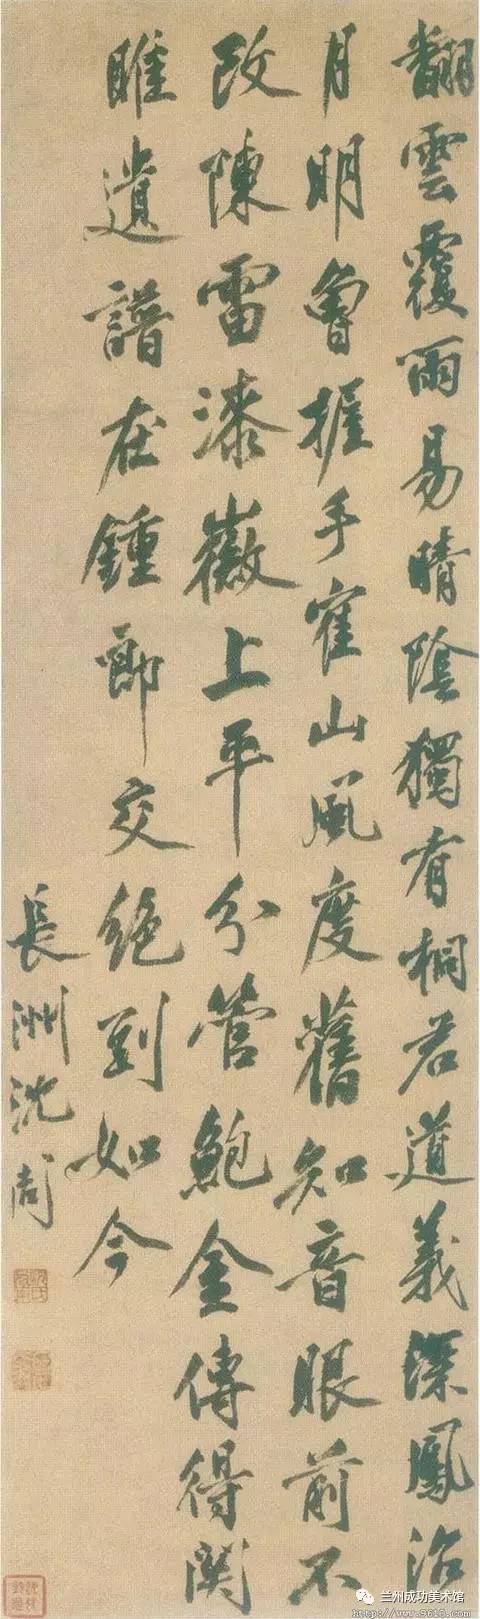 翻雲覆雨易晴陰獨有桐君道義深鳳沼
月明曾握手雀山風度舊知音眼前不
改陳雷漆嶽上平分管鮑金傳得関
雎遺譜在鍾郎交絶到如今
長洲沈周
兰州成功美术馆
http://www.9610.com